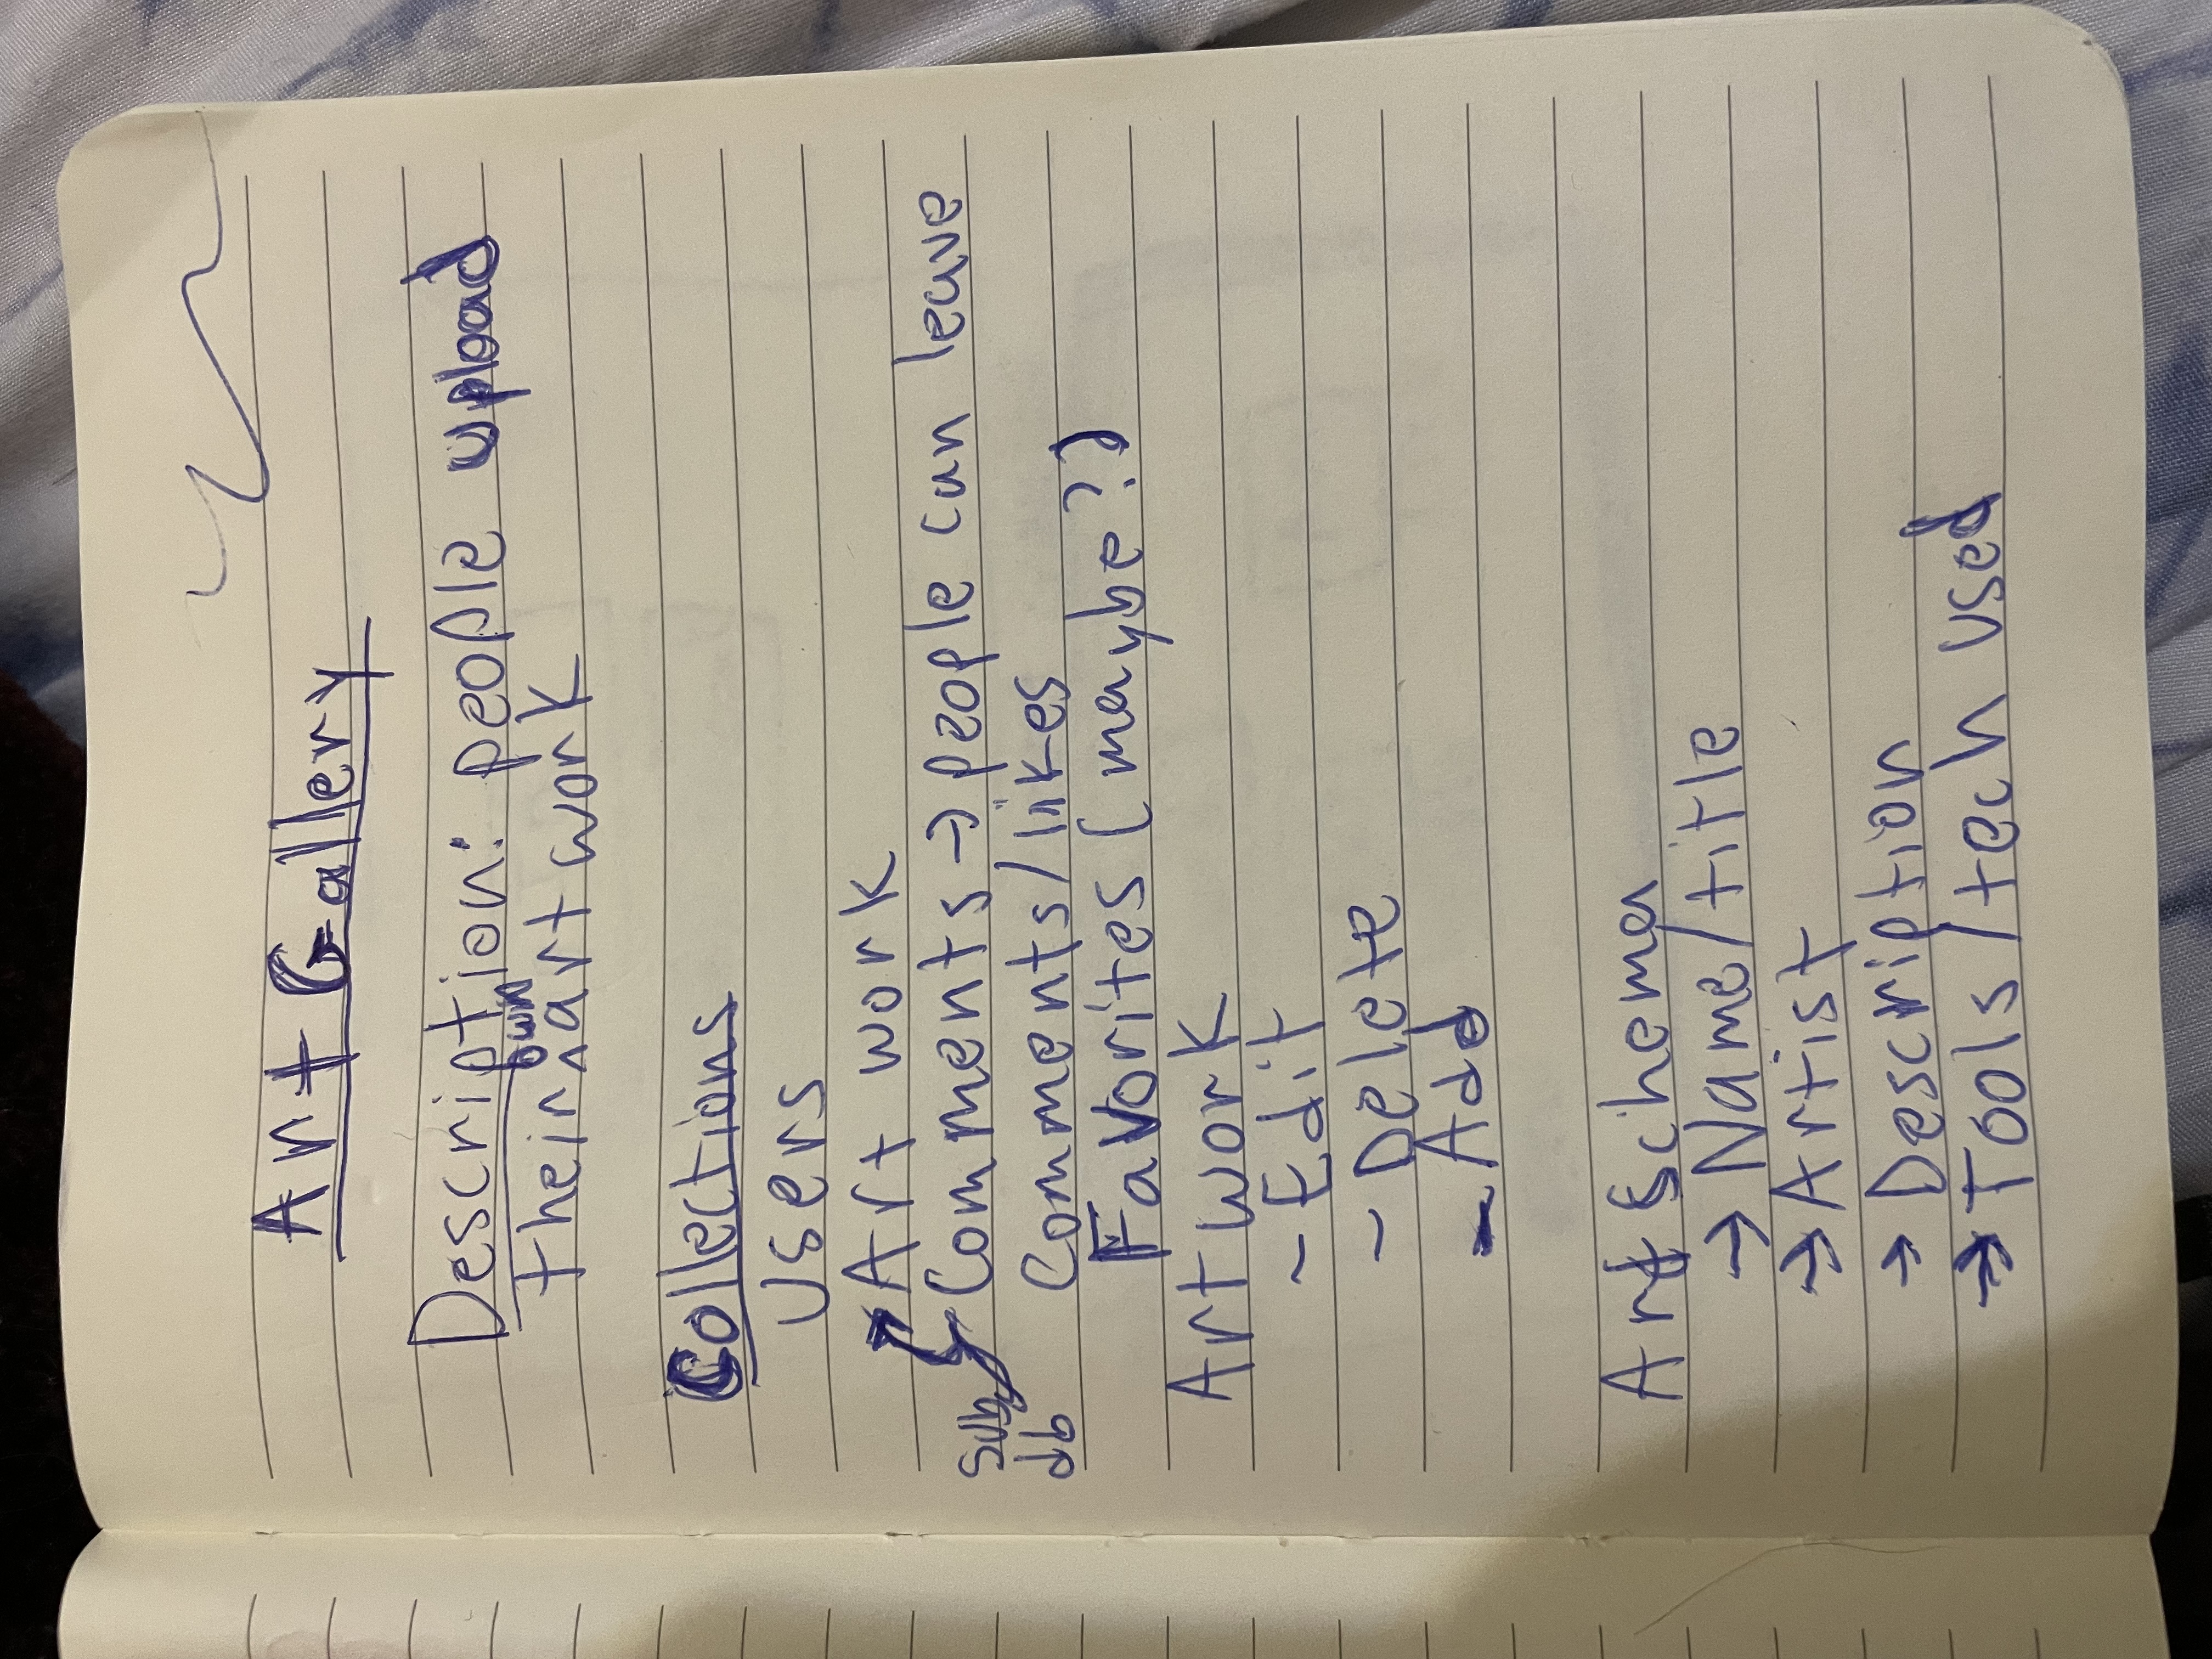 Art Gallery
Description: people upload
their own art work
Collections
Users
Art work
Comments → people can leave
sub
db
Comments/likes
Favorites (maybe?)
Artwork
- Edit
- Delete
- Add
Art Schema
→ Name/title
→ Artist
→ Description
→ Tools/tech used